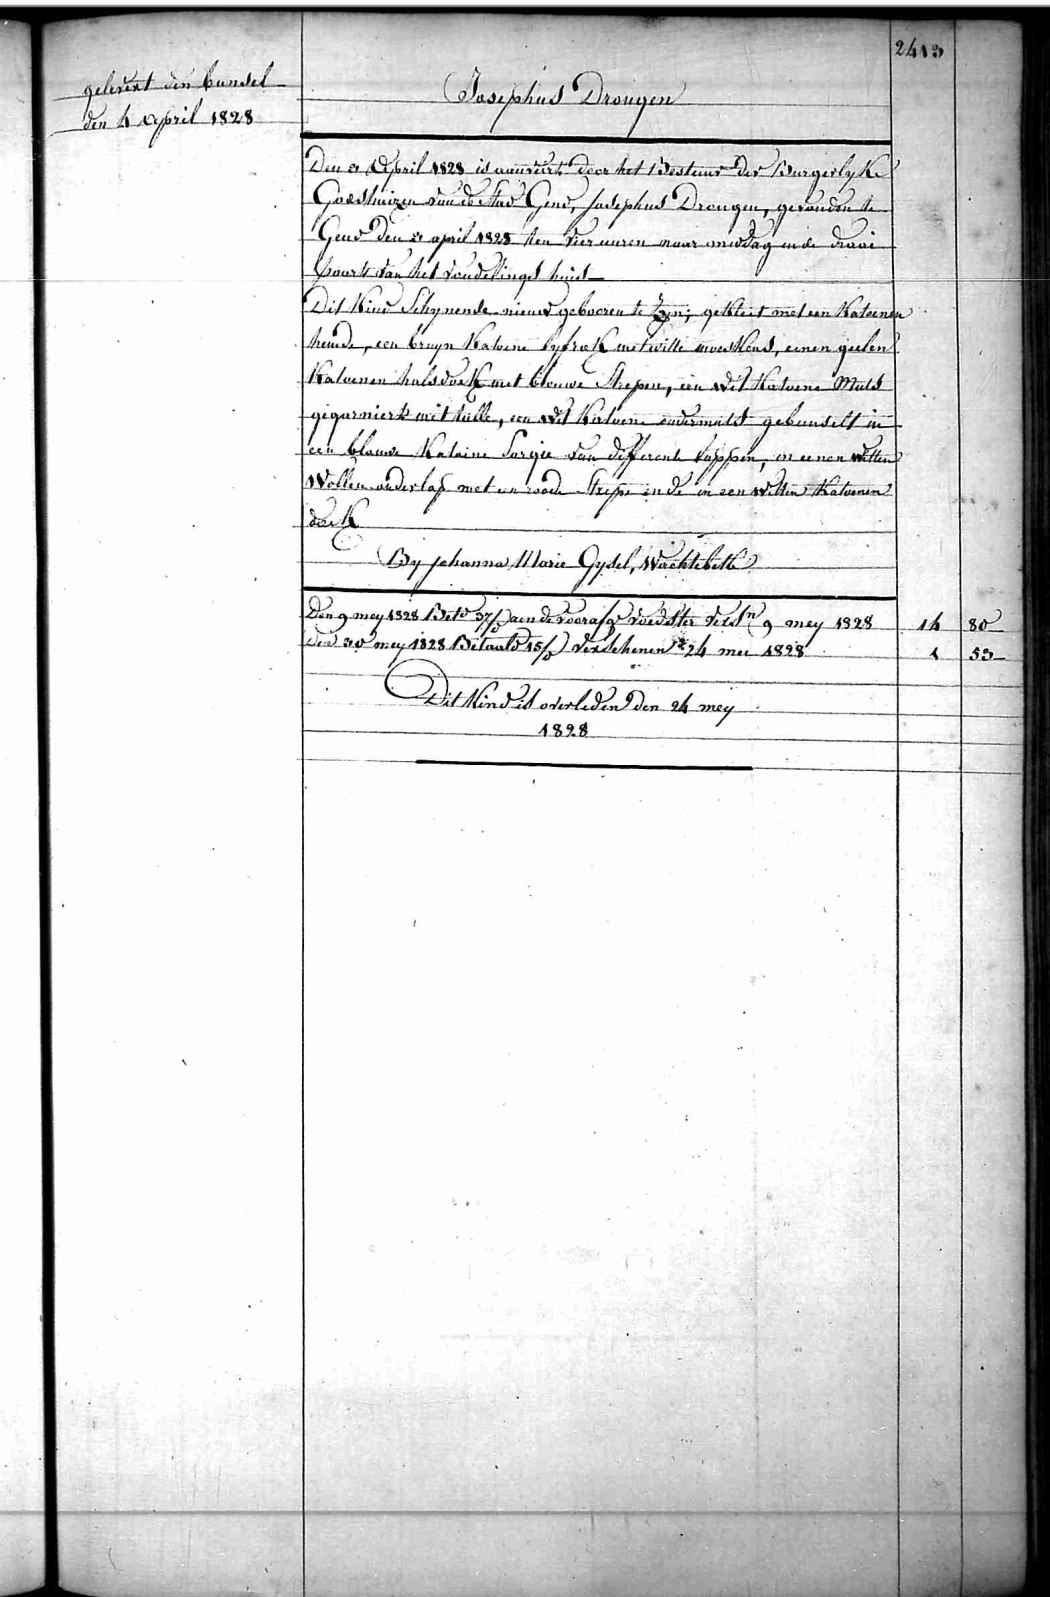 2413
gelevert den bunsel
den 4 April 1828
Josephus Drongen
Den 2 April 1828 is aanveirt door het Bestuur der Burgerlyke
Godshuizen van de Stad Gend, Josephus Drongen, gevonden te
Gend den 2 april 1828 ten vier uuren naar middag in de draai
poorte van het vondelings huis
Dit Kind Schynende nieuw geboren te zyn; gekleet met een Katoenen
hemde, een bruyn Katoene lyfrok met witte moeskens, eenen geelen
Katoenen halsdoek met blauwe Strepen, een wit Katoene Muts
gegarniert met tulle, een wit Katoene ondermuts gebunselt in
een blauwe Katoine Sargie van differente lappen, en eenen witten
Wollen onderlap met een roode Strepe ende in een Witten Katoenen
doek
By Johanna Marie Gysel, Wachtebeke
Den 9 mey 1828 Betd 37/d aen de voorsg voedster verstn 9 mey 1828 14 80
den 30 mey 1828 Betaald 15/d verschenen 24 mei 1828 1 53
Dit Kind is overleden den 24 mey
1828